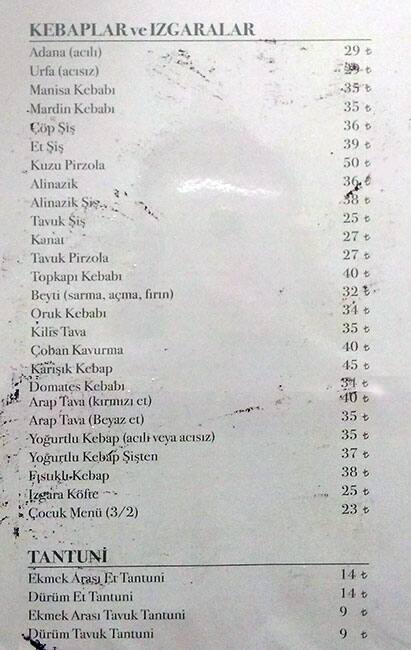 KEBAPLAR ve IZGARALAR
Adana (acılı) 29 ₺
Urfa (acısız) 29 ₺
Manisa Kebabı 35 ₺
Mardin Kebabı 35 ₺
Çöp Şiş 36 ₺
Et Şiş 39 ₺
Kuzu Pirzola 50 ₺
Alinazik 36 ₺
Alinazik Şiş 38 ₺
Tavuk Şiş 25 ₺
Kanat 27 ₺
Tavuk Pirzola 27 ₺
Topkapı Kebabı 40 ₺
Beyti (sarma, açma, fırın) 32 ₺
Oruk Kebabı 34 ₺
Kilis Tava 35 ₺
Çoban Kavurma 40 ₺
Karışık Kebap 45 ₺
Domates Kebabı 34 ₺
Arap Tava (kırmızı et) 40 ₺
Arap Tava (Beyaz et) 35 ₺
Yoğurtlu Kebap (acılı veya acısız) 35 ₺
Yoğurtlu Kebap Şişten 37 ₺
Fıstıklı Kebap 38 ₺
Izgara Köfte 25 ₺
Çocuk Menü (3/2) 23 ₺
TANTUNİ
Ekmek Arası Et Tantuni 14 ₺
Dürüm Et Tantuni 14 ₺
Ekmek Arası Tavuk Tantuni 9 ₺
Dürüm Tavuk Tantuni 9 ₺